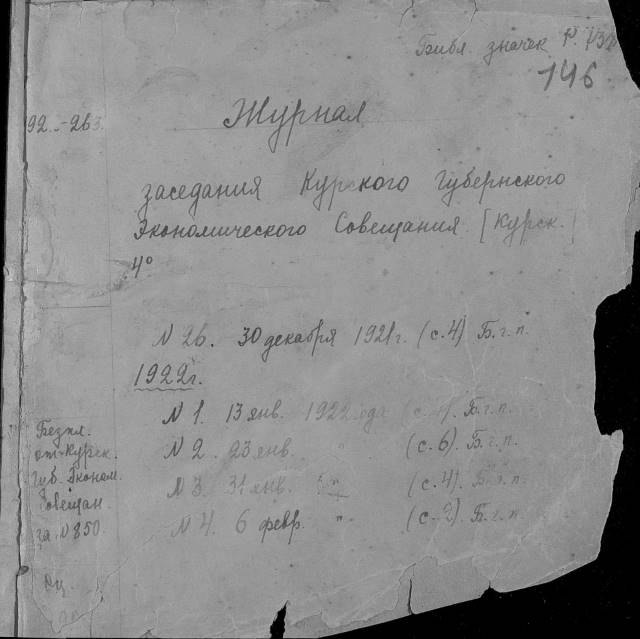 Библ. значек
146
92.-263
Журнал
заседания Курского Губернского
Экономического Совещания [Курск.]
4°
N 26. 30 декабря 1921г. (с.4) Б.г.п.
1922г.
N 1. 13 янв. 1922 года (с. ). Б.г.п.
N 2. 23 янв. " (с.6). Б.г.п.
N 3. 31 янв. (с.4). Б.г.п.
N 4. 6 февр. " (с. ) Б.г.п.
Безпл.
от Курск.
Губ. Эконом.
Совещан.
за N 850.